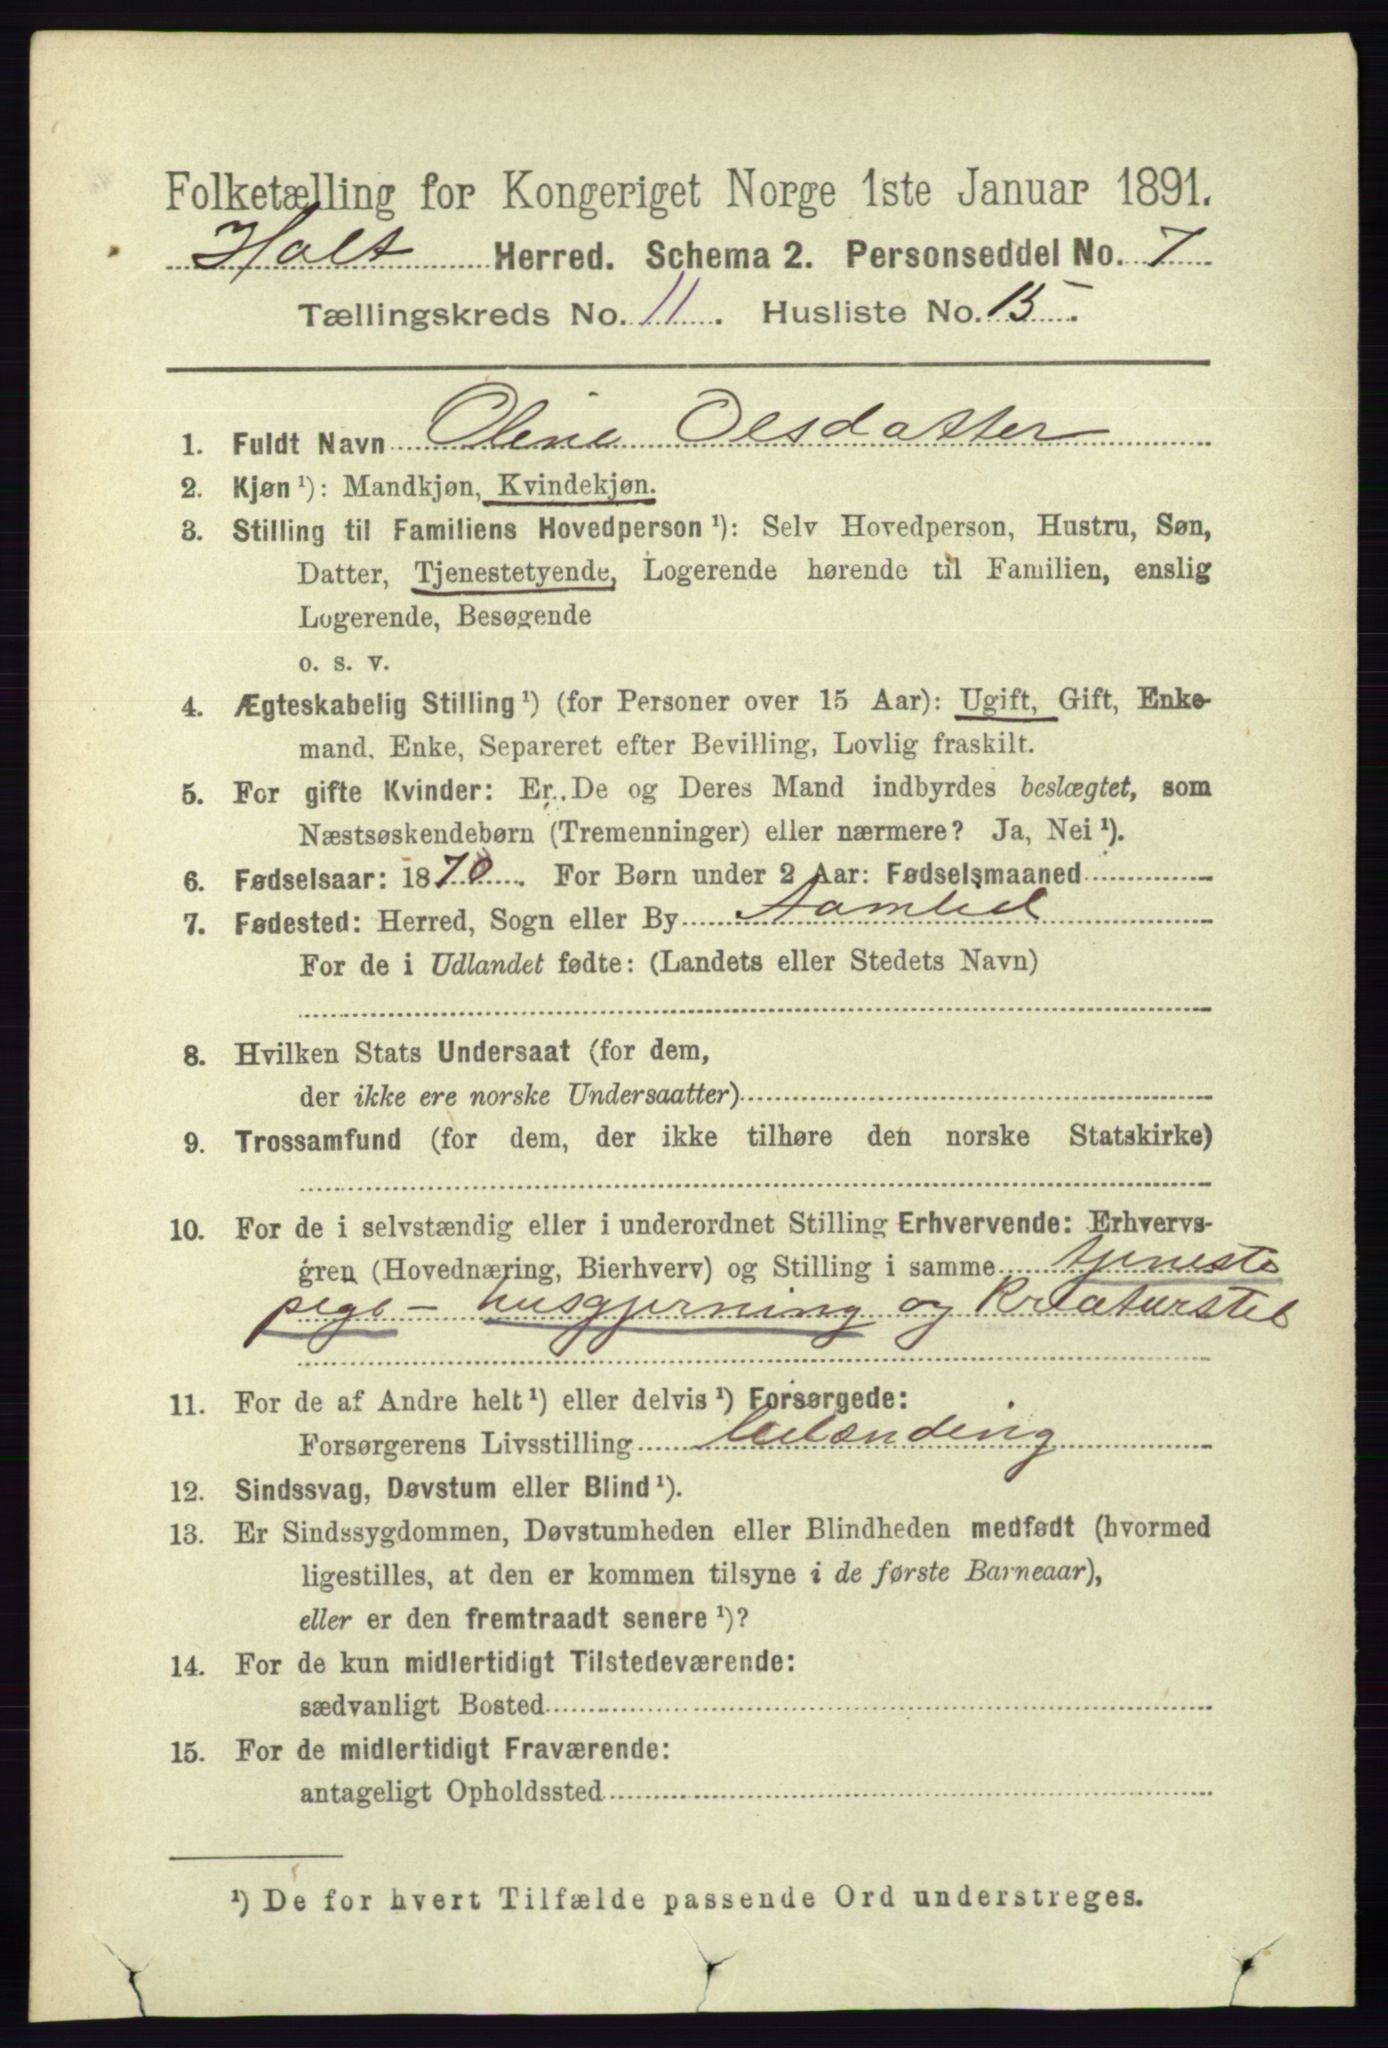 Folketælling for Kongeriget Norge 1ste Januar 1891.
Holt Herred. Schema 2. Personseddel No. 7
Tællingskreds No. 11. Husliste No. 15.
1. Fuldt Navn Oline Olsdatter
2. Kjøn ¹): Mandkjøn, Kvindekjøn.
3. Stilling til Familiens Hovedperson ¹): Selv Hovedperson, Hustru, Søn,
Datter, Tjenestetyende, Logerende hørende til Familien, enslig
Logerende, Besøgende
o. s. v.
4. Ægteskabelig Stilling ¹) (for Personer over 15 Aar): Ugift, Gift, Enke-
mand, Enke, Separeret efter Bevilling, Lovlig fraskilt.
5. For gifte Kvinder: Er De og Deres Mand indbyrdes beslægtet, som
Næstsøskendebørn (Tremenninger) eller nærmere? Ja, Nei ¹).
6. Fødselsaar: 1870. For Børn under 2 Aar: Fødselsmaaned
7. Fødested: Herred, Sogn eller By Aamlid
For de i Udlandet fødte: (Landets eller Stedets Navn)
8. Hvilken Stats Undersaat (for dem,
der ikke ere norske Undersaatter)
9. Trossamfund (for dem, der ikke tilhøre den norske Statskirke)
10. For de i selvstændig eller i underordnet Stilling Erhvervende: Erhvervs-
gren (Hovednæring, Bierhverv) og Stilling i samme tjeneste
pige - husgjerning og Kreaturstel
11. For de af Andre helt ¹) eller delvis ¹) Forsørgede:
Forsørgerens Livsstilling
12. Sindssvag, Døvstum eller Blind ¹).
13. Er Sindssygdommen, Døvstumheden eller Blindheden medfødt (hvormed
ligestilles, at den er kommen tilsyne i de første Barneaar),
eller er den fremtraadt senere ¹)?
14. For de kun midlertidigt Tilstedeværende:
sædvanligt Bosted
15. For de midlertidigt Fraværende:
antageligt Opholdssted
¹) De for hvert Tilfælde passende Ord understreges.